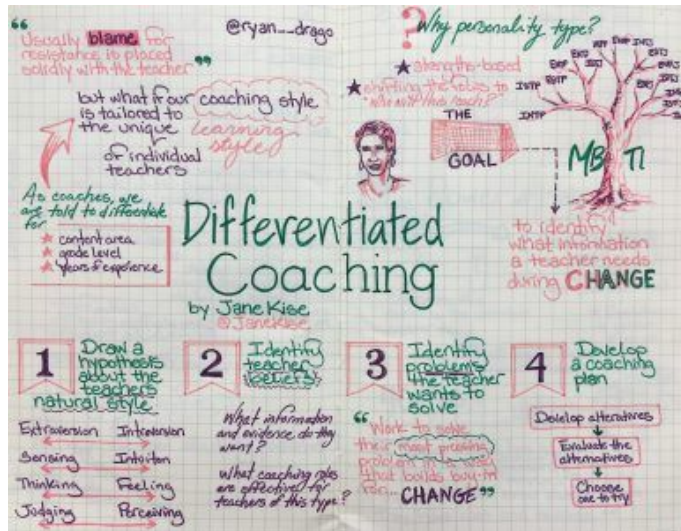 "Usually blame for
resistance is placed
solidly with the teacher"
@ryan__drago
but what if our coaching style
is tailored to
the unique learning
style
of individual
teachers
As coaches, we
are told to differentiate
for
content area
grade level
years of experience
? Why personality type?
strengths-based
shifting the focus to
THE
GOAL
MBTI
INTP
ESTP
ISTP
to identify
what information
a teacher needs
during CHANGE
Differentiated
Coaching
by Jane Kise
@JaneKise
1
Draw a
hypothesis
about the
teachers
natural style
Extraversion Introversion
Sensing Intuiton
Thinking Feeling
Judging Perceiving
2
Identify
teacher
beliefs
What information
and evidence do they
want?
What coaching roles
are effective for
teachers of this type?
3
Identify
problems
the teacher
wants to
solve
"Work to solve
their most pressing
problem in a way
that builds buy-in
for... CHANGE"
4
Develop
a coaching
plan
Develop alteratives
Evaluate the
alternatives
Choose
one to try